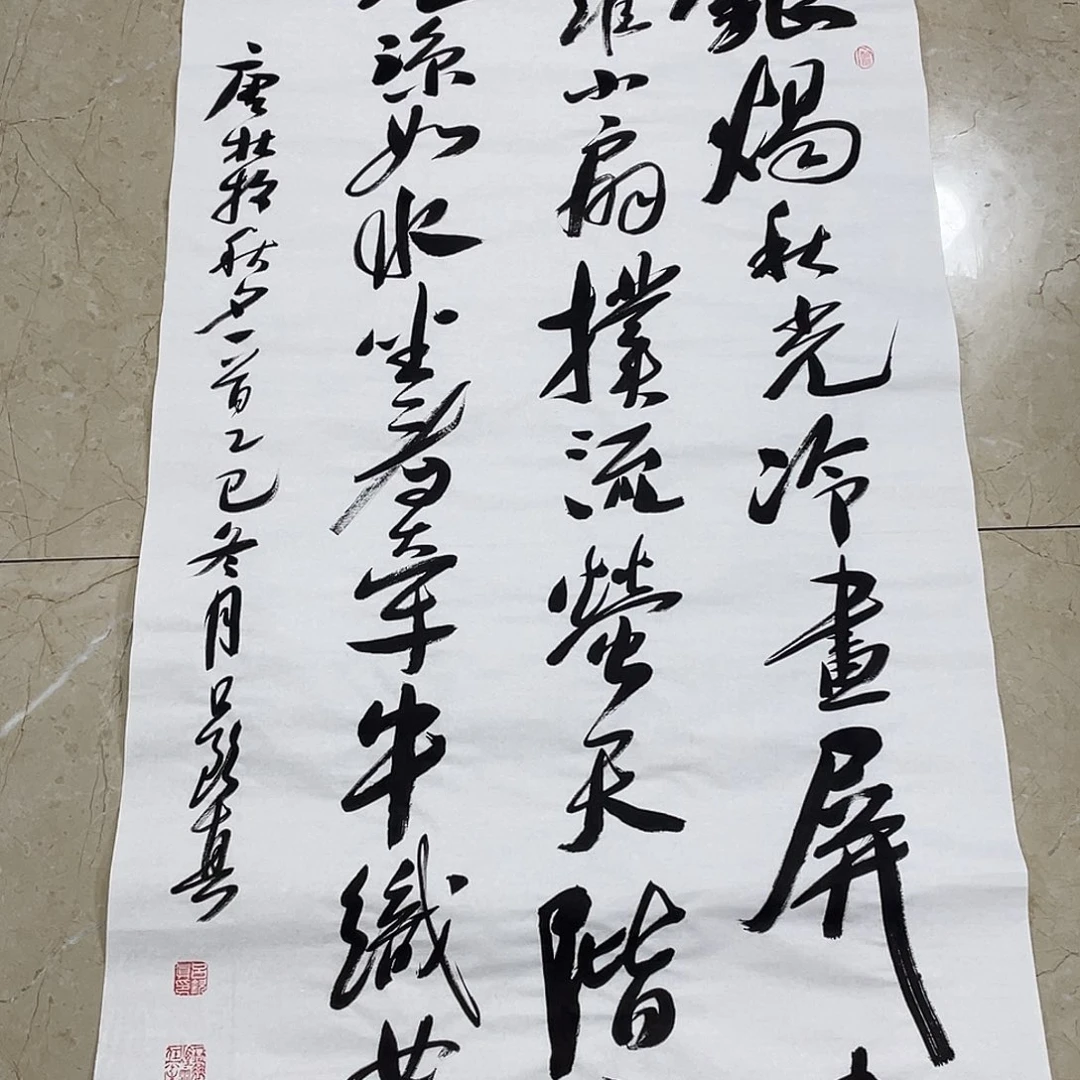 銀燭秋光冷畫屏
羅小扇撲流螢天階
涼如水坐看牽牛織女
唐杜牧秋夕一首乙巳冬月